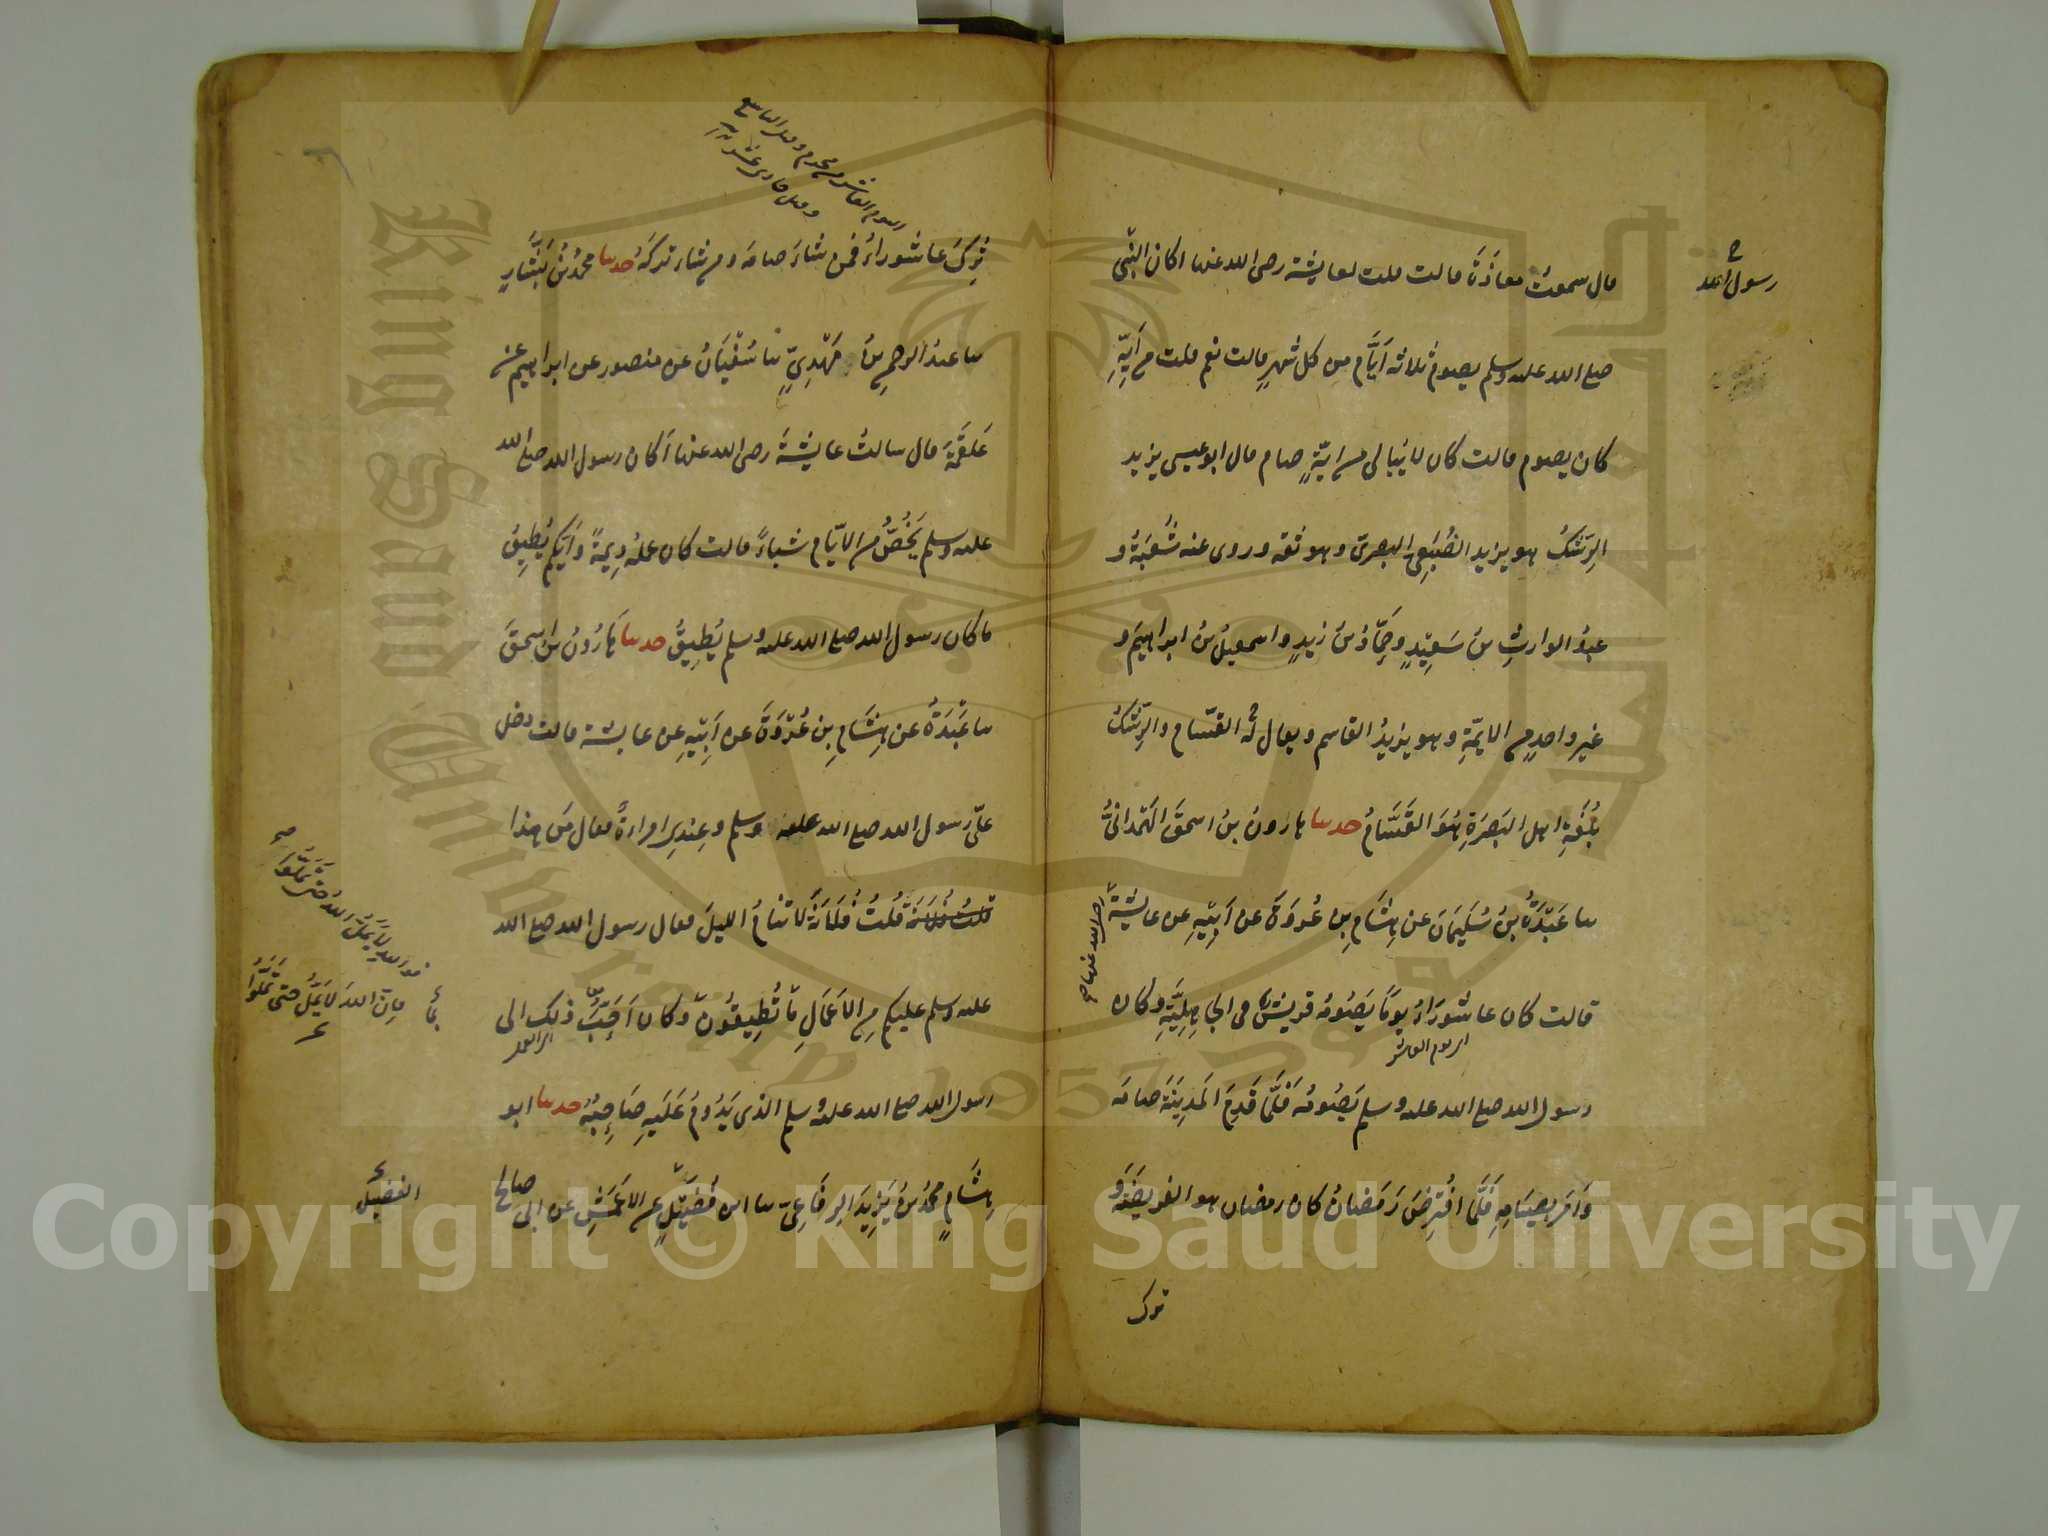 رسول الله
قال سمعتُ معاذَةَ قالت قلت لعايشة رضى الله عنها اكان النبّى
صلى الله عليه وسلم يصوم ثلاثة اَيَّام مِن كل شهرٍ قالت نعم قلت من اَيِّهِ
كان يصوم قالت كان لا يُبالى من ايّهٍ صام قال ابو عيسى يزيد
الرِّشْكُ هو يزيد الضُبَعِىّ البصرىّ وهو ثقة وروى عنه شُعْبَةُ و
عبدُ الوارثِ بنُ سَعِيْدٍ وحَمَّادُ بنُ زيدٍ واسمعيلُ بنُ ابراهيمَ و
غير واحدٍ من الايمّةِ وهو يزيدُ القاسم ويقال لهُ القسّام والرِّشْكُ
بُلغَةِ اهل البَصرَةِ هُوَ القَسَّامُ حدثنا هارونُ بنُ اسحقَ الهَمْدانىُّ
ثنا عَبْدَةُ بنُ سُلَيمَنَ عن هِشَامِ بِن عُروَةَ عن اَبِيْهِ عن عايشة
رضى الله عنها صح
قالت كان عاشُورَاءُ يومًا يَصُومُه قريشٌ فى الجاهِلِيَّةِ وكان
اى يوم العاشر
رسول الله صلى الله عليه وسلم يَصُومُه فَلَمَّا قَدِمَ المَدِينَةَ صامَه
وَاَمَرَ بِصِيَامِهِ فَلَمَّا افْتُرِضَ رَمَضانُ كان رمضان هو الفريضَةُ و
ترك
اى يوم العاشر من محرم وقيل التاسع
وقيل حادى عشر
تُرِكَ عاشوراءُ فمن شاءَ صامَه ومن شاء تركَهُ حدثنا محمدُ بنُ بَشَّارٍ
ثنا عبدُ الرحمنِ بنُ مَهْدِىٍّ ثنا سُفْيَانُ عن منصور عن ابراهيم عن
عَلقَمَةَ قال سالتُ عايشَةَ رضى الله عنها اَكان رسول الله صلى الله
عليه وسلم يَخُصُّ من الايّام شياءً قالت كان عملُه دِيمَةً وَاَيّكم يُطِيقُ
ما كان رسول الله صلى الله عليه وسلم يُطِيقُ حدثنا هَارُونُ بنُ اسحقَ
ثنا عَبْدَةُ عن هِشَامِ بِن عُرْوَةَ عن اَبِيْهِ عن عايشة قالت دخل
علىّ رسول الله صلى الله عليه وسلم وعِندِى امراءةٌ فقال مَن هذا
قلتُ فُلانَة قُلتُ فُلَانَةُ لا تنامُ الليلَ فقال رسول الله صلى الله
عليه وسلم عليكم مِن الاَعمَالِ مَا تُطِيقُونَ وكان اَحَبَّ ذلك الى
رسول الله صلى الله عليه وسلم الذى يَدُومُ عَلَيهِ صَاحِبُهُ حدثنا ابو
هِشَامٍ محمدُ بنُ يَزِيدَ الرِفَاعِىّ ثنا ابن فُضَيْلٍ عن الاَعمَشِ عن ابى صالح
فو الله لا يَمَلُّ اللهُ حتّى تَمَلُّوا صح
فاِنّ اللهَ لا يَمَلُّ حتّى تَمَلُّوا
الفضيل